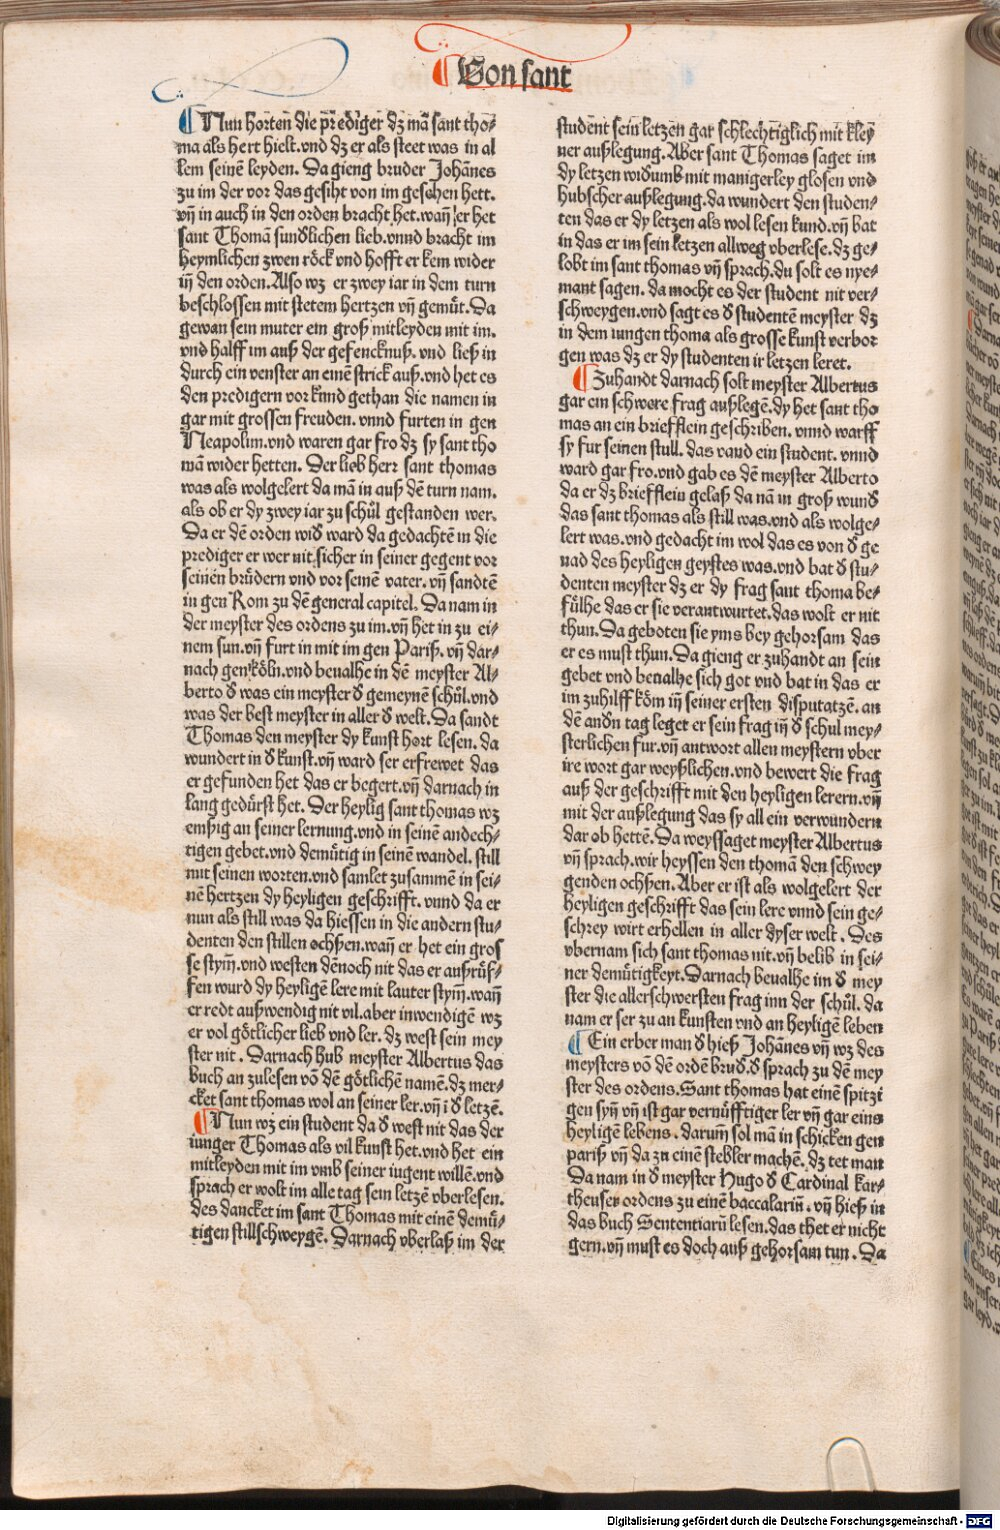 Von sant
Nun horten die prediger dz mā sant tho⸗
ma als hert hielt. vnd dz er als steet was in al
lem seinē leyden. Da gieng bruder Johānes
zu im der vor das gesiht von im gesehen hett.
vn̄ in auch in den orden bracht het. wan̄ er het
sant Thomā sundlichen lieb. vnnd bracht im
heymlichen zwen röck vnd hofft er kem wider
in̄ den orden. Also wz er zwey iar in dem turn
beschlossen mit stetem hertzen vn̄ gemüt. Da
gewan sein muter ein groß mitleyden mit im.
vnd halff im auß der gefencknuß. vnd ließ in
durch ein venster an einē strick auß. vnd het es
den predigern vor kund gethan die namen in
gar mit grossen freuden. vnnd furten in gen
Neapolim. vnd waren gar fro dz sy sant tho
mā wider hetten. Der lieb herr sant thomas
was als wolgelert da mā in auß dē turn nam.
als ob er dy zwey iar zu schůl gestanden wer.
Da er dē orden wid ward da gedachtē in die
prediger er wer nit sicher in seiner gegent vor
seinen brüdern vnd vor seinē vater. vn̄ sandtē
in gen Rom zu dē general capitel. Da nam in
der meyster des ordens zu im. vn̄ het in zu ei⸗
nem sun. vn̄ furt in mit im gen Pariß. vn̄ dar⸗
nach gen köln. vnd beualhe in dē meyster Al⸗
berto d was ein meyster d gemeynē schůl. vnd
was der best meyster in aller d welt. Da sandt
Thomas den meyster dy kunst hort lesen. da
wundert in d kunst. vn̄ ward ser erfrewet das
er gefunden het das er begert. vn̄ darnach in
lang gedürst het. Der heylig sant thomas wz
emßig an seiner lernung. vnd in seinē andech⸗
tigen gebet. vnd demütig in seinē wandel. still
mit seinen worten. vnd samlet zusammē in sei⸗
nē hertzen dy heyligen geschrifft. vnnd da er
nun als still was da hiessen in die andern stu⸗
denten den stillen ochßen. wan̄ er het ein gros
se stym̄. vnd westen dēnoch nit das er außrůf⸗
fen wurd dy heyligē lere mit lauter stym̄. wan̄
er redt außwendig nit vil. aber inwendigē wz
er vol götlicher lieb vnd ler. dz west sein mey
ster nit. Darnach hub meyster Albertus das
buch an zulesen vō dē götlichē namē. dz mer⸗
cket sant thomas wol an seiner ler. vn̄ i d letzē.
Nun wz ein student da d west nit das der
iunger Thomas als vil kunst het. vnd het ein
mitleyden mit im vmb seiner iugent willē. vnd
sprach er wolt im alle tag sein letzē vberlesen.
des dancket im sant Thomas mit einē demü⸗
tigen stillschweygē. Darnach vberlaß im der
student sein letzen gar schlechtiglich mit kley
ner außlegung. Aber sant Thomas saget im
dy letzen widumb mit manigerley glosen vnd
hubscher außlegung. da wundert den studen⸗
ten das er dy letzen als wol lesen kund. vn̄ bat
in das er im sein letzen allweg vberlese. dz ge⸗
lobt im sant thomas vn̄ sprach. du solt es nye⸗
mant sagen. da mocht es der student nit ver⸗
schweygen. vnd sagt es d studentē meyster dz
in dem iungen thoma als grosse kunst verbor
gen was dz er dy studenten ir letzen leret.
Zuhandt darnach solt meyster Albertus
gar ein schwere frag außlegē. dy het sant tho
mas an ein briefflein geschriben. vnnd warff
sy fur seinen stull. das vand ein student. vnnd
ward gar fro. vnd gab es dē meyster Alberto
da er dz briefflein gelaß da nā in groß wund
das sant thomas als still was. vnd als wolge⸗
lert was. vnd gedacht im wol das es von d ge
nad des heyligen geystes was. vnd bat d stu⸗
denten meyster dz er dy frag sant thoma be⸗
fülhe das er sie verantwurtet. das wolt er nit
thun. Da geboten sie yms bey gehorsam das
er es must thun. Da gieng er zuhandt an sein
gebet vnd beualhe sich got vnd bat in das er
im zuhilff köm in̄ seiner ersten disputatzē. an
dē andn tag leget er sein frag in̄ d schul mey⸗
sterlichen fur. vn̄ antwort allen meystern vber
ire wort gar weyßlichen. vnd bewert die frag
auß der geschrifft mit den heyligen lerern. vn̄
mit der außlegung das sy all ein verwundern
dar ob hettē. Da weyssaget meyster Albertus
vn̄ sprach. wir heyssen den thomā den schwey
genden ochßen. Aber er ist als wolgelert der
heyligen geschrifft das sein lere vnnd sein ge⸗
schrey wirt erhellen in aller dyser welt. Des
vbernam sich sant thomas nit. vn̄ belib in sei⸗
ner demütigkeyt. Darnach beualhe im d mey
ster die allerschwersten frag inn der schůl. da
nam er ser zu an kunsten vnd an heyligē leben
Ein erber man d hieß Johānes vn̄ wz des
meysters vō dē ordē brud. d sprach zu dē mey
ster des ordens. Sant thomas hat einē spitzi
gen syn̄ vn̄ ist gar vernüfftiger ler vn̄ gar eins
heyligē lebens. darum̄ sol mā in schicken gen
pariß vn̄ da zu einē stebler machē. dz tet man
Da nam in d meyster Hugo d Cardinal kar⸗
theuser ordens zu einē baccalariū. vn̄ hieß in
das buch Sententiarū lesen. das thet er nicht
gern. vn̄ must es doch auß gehorsam tun. Da
Digitalisierung gefördert durch die Deutsche Forschungsgemeinschaft - DFG